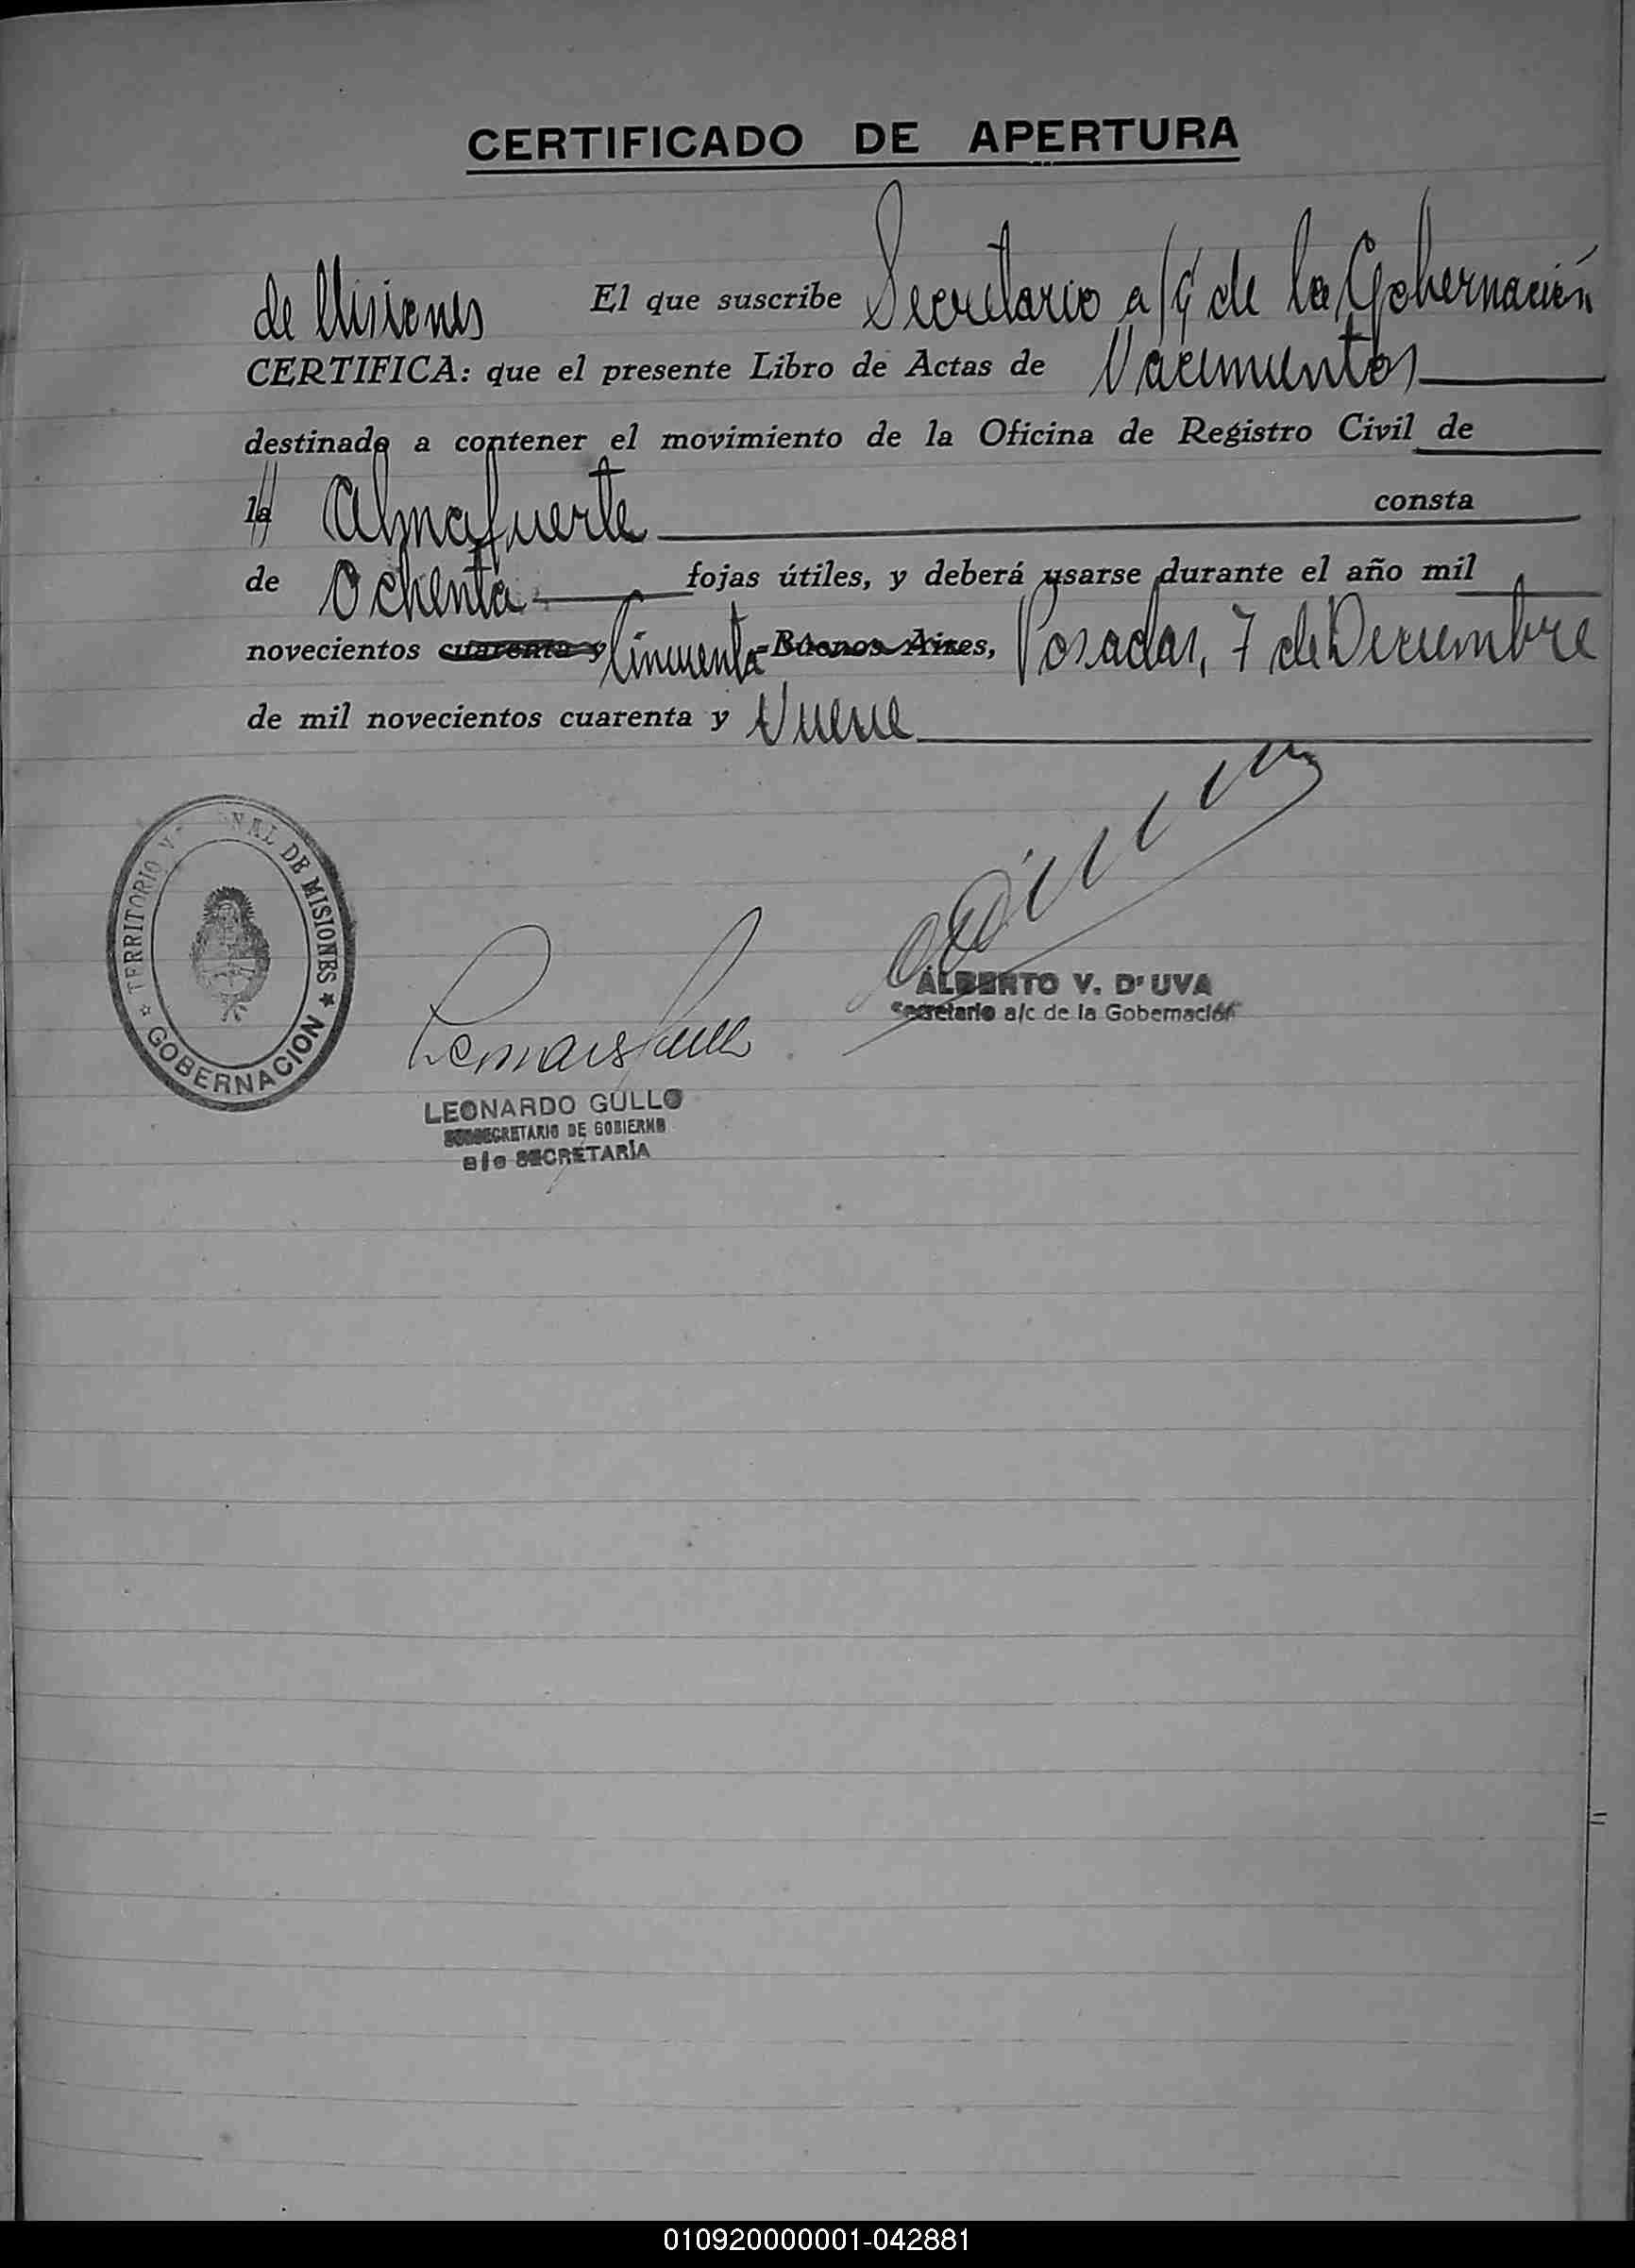 CERTIFICADO DE APERTURA
El que suscribe Secretario a/c de la Gobernación
de Misiones
CERTIFICA: que el presente Libro de Actas de Nacimientos
destinado a contener el movimiento de la Oficina de Registro Civil de
la Almafuerte consta
de Ochenta fojas útiles, y deberá usarse durante el año mil
novecientos cuarenta y Cincuenta Buenos Aires, Posadas, 7 de Diciembre
de mil novecientos cuarenta y Nueve
TERRITORIO NAL DE MISIONES
GOBERNACION
ALBERTO V. D'UVA
Secretario a/c de la Gobernación
LEONARDO GULLO
SUBSECRETARIO DE GOBIERNO
a/c SECRETARÍA
010920000001-042881